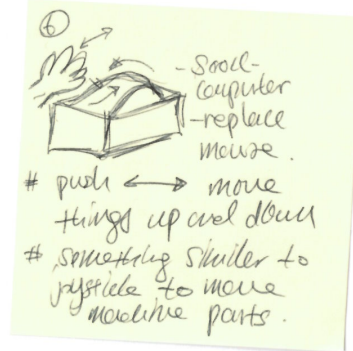 6
- Sood-
computer
- replace
mouse.
# push ↔ move
things up and down
# something similer to
joystick to move
machine parts.